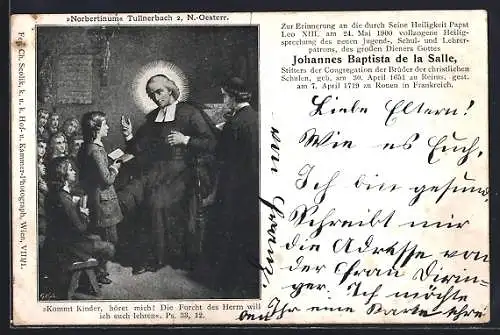 »Norbertinum« Tullnerbach 2, N.-Oesterr.
Fec. Ch. Scolik, k. u. k. Hof- u. Kammer-Photograph, Wien, VIII/1.
»Kommt Kinder, höret mich! Die Furcht des Herrn will
ich euch lehren«. Ps. 33, 12.
Zur Erinnerung an die durch Seine Heiligkeit Papst
Leo XIII. am 24. Mai 1900 vollzogene Heilig-
sprechung des neuen Jugend-, Schul- und Lehrer-
patrons, des großen Dieners Gottes
Johannes Baptista de la Salle,
Stifters der Congregation der Brüder der christlichen
Schulen, geb. am 30. April 1651 zu Reims, gest.
am 7. April 1719 zu Rouen in Frankreich.
Liebe Eltern!
Wie es Euch,
Ich bin gesund.
Schreibt mir
die Adresse von
der Frau Dirin-
ger. Ich möchte
Ihr eine Karte
Franz